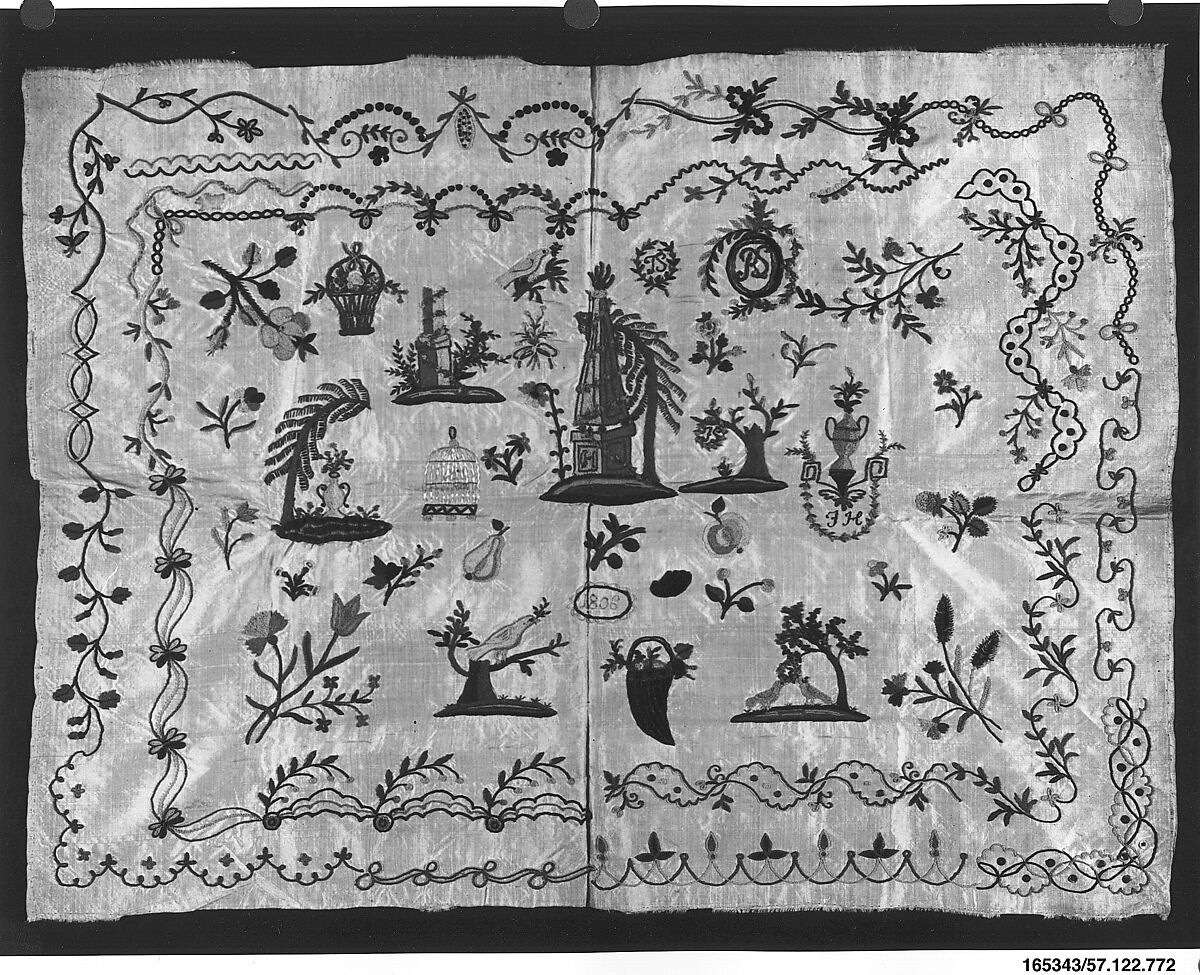 TS
RS
JH
JH
1808
165343/57.122.772